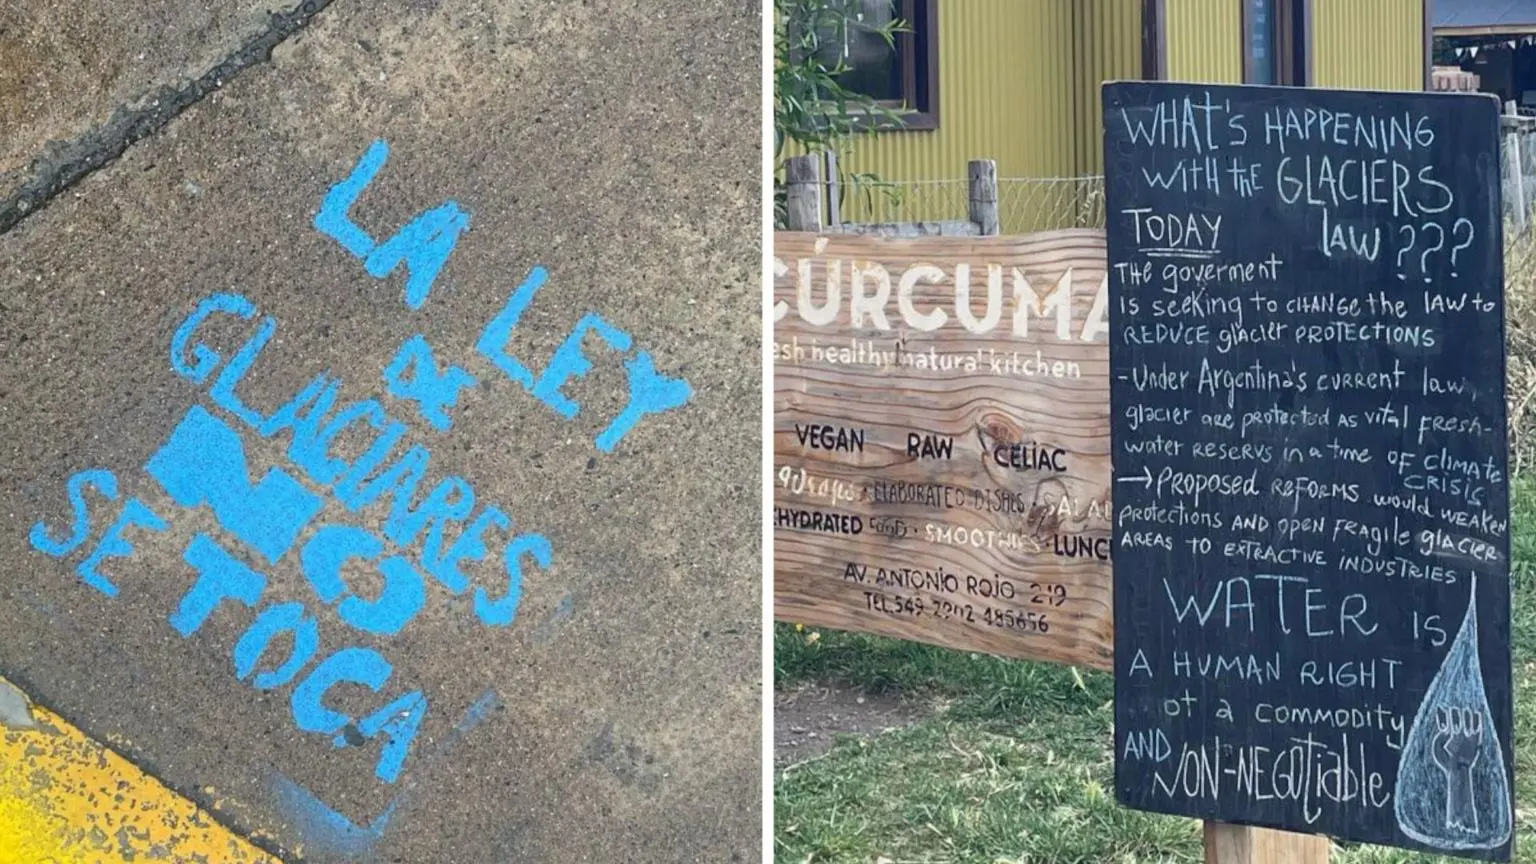 LA LEY
DE
GLACIARES
NO
SE TOCA
CÚRCUMA
esh healthy natural kitchen
VEGAN RAW CELIAC
Wraps · ELABORATED DISHES · SALAD
EHYDRATED FOOD · SMOOTHIES · LUNCH
AV. ANTONIO ROJO 219
TEL. 549 2902 485656
WHAT'S HAPPENING
WITH tHE GLACIERS
TODAY LAW ???
THE goverment
IS seeking to CHANGE the LAW to
REDUCE glacier PROTECTIONS
-Under Argentina's current law,
glacier are protected AS vital fresh-
water reservs in a time OF CLIMATE
CRISIS
→ Proposed REFORMS would WEAKEN
Protections AND open FRAgile glacier
AREAS to EXTRACTIVE INDUSTRIES
WATER IS
A HUMAN RIGHT
ot a COMMODITY
AND NON-NEGOtiable